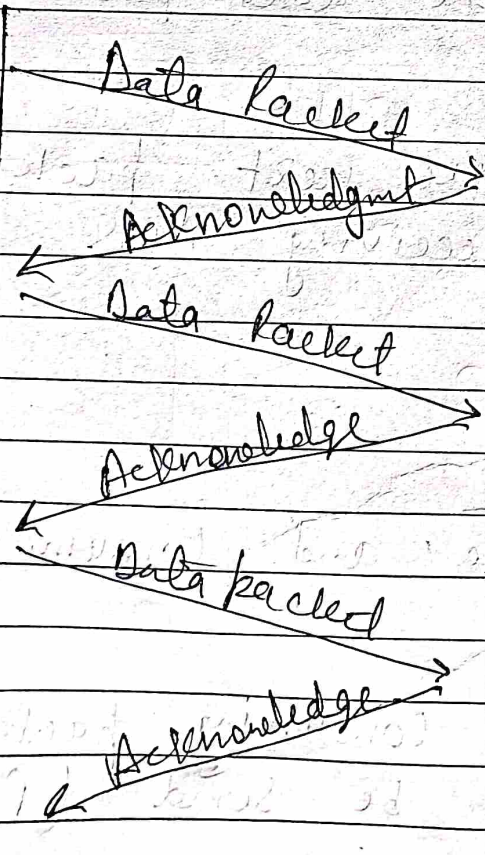 Data Packet
Acknowledgmt
Data Packet
Acknowledge
Data packed
Acknowledge